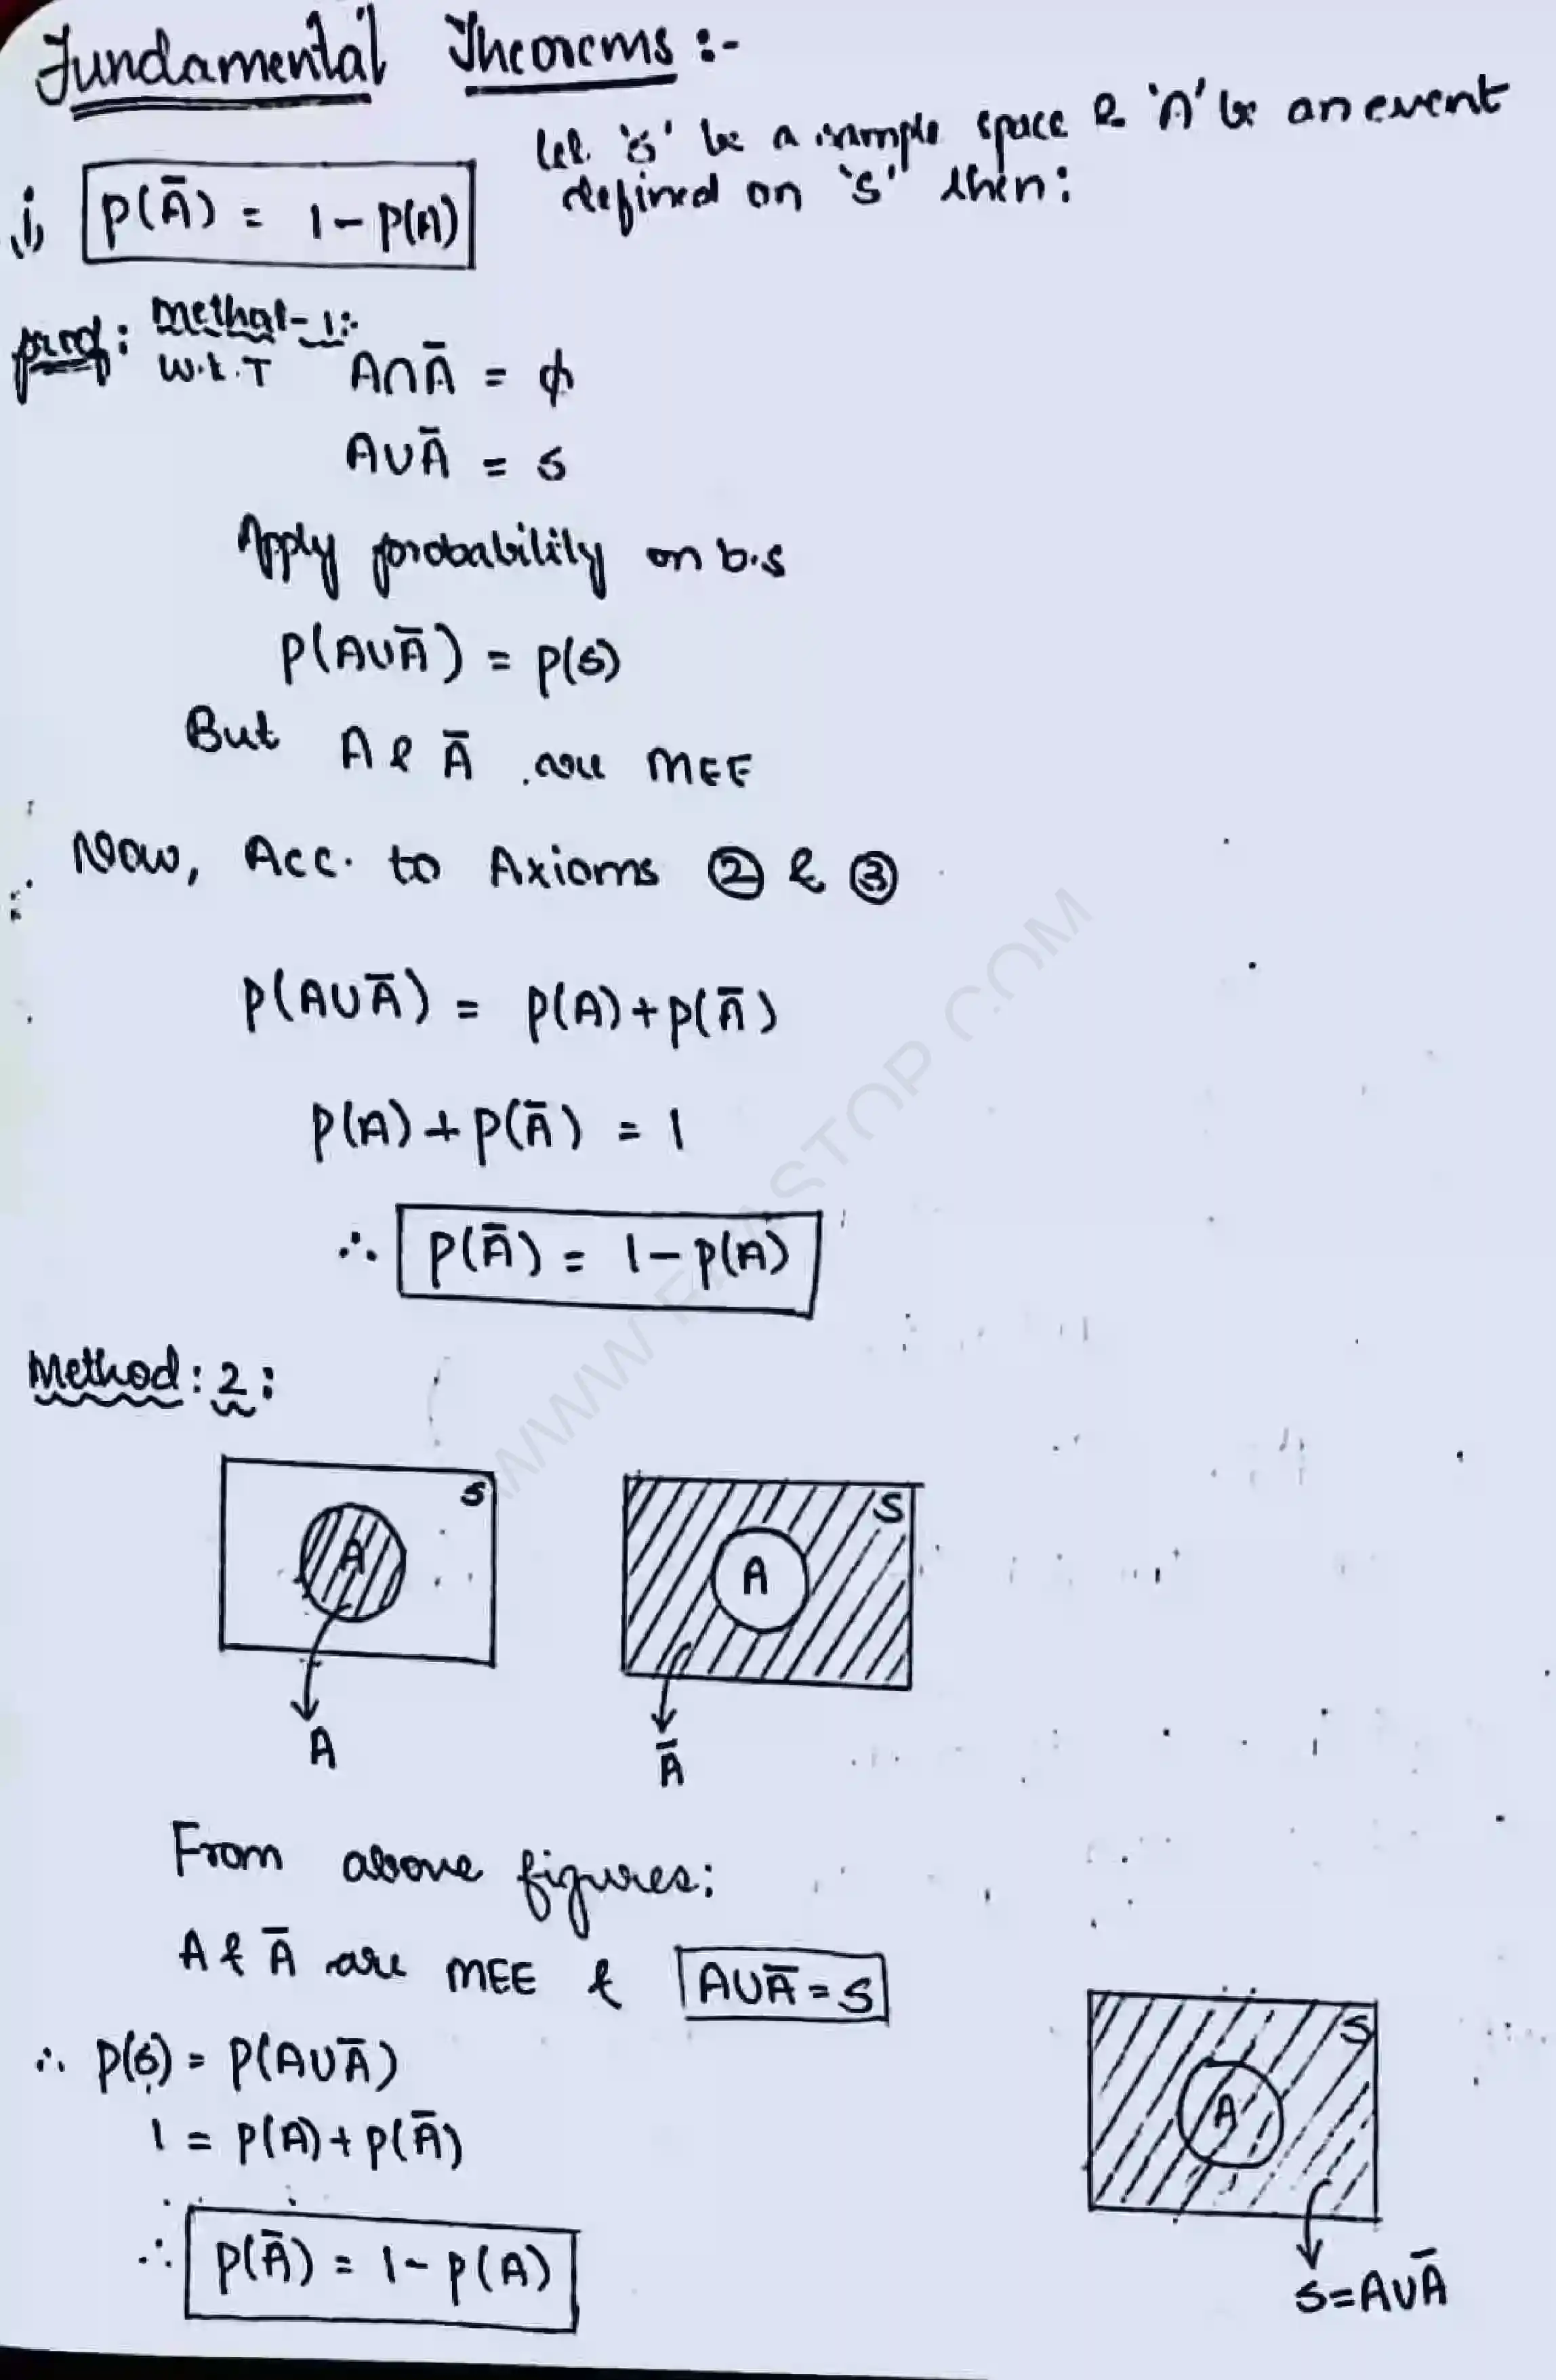 Fundamental Theorems :-
Let 'S' be a sample space & 'A' be an event
defined on 'S' then:
i) P(Ā) = 1 - P(A)
proof: Method-1:
W.k.T A∩Ā = ϕ
A∪Ā = S
Apply probability on b.s
P(A∪Ā) = P(S)
But A & Ā are MEE
Now, Acc. to Axioms ② & ③
P(A∪Ā) = P(A)+P(Ā)
P(A)+P(Ā) = 1
∴ P(Ā) = 1-P(A)
Method: 2:
S S
A A
A Ā
From above figures:
A & Ā are MEE & A∪Ā = S
∴ P(S) = P(A∪Ā)
1 = P(A)+P(Ā)
∴ P(Ā) = 1-P(A)
S
A
S=A∪Ā